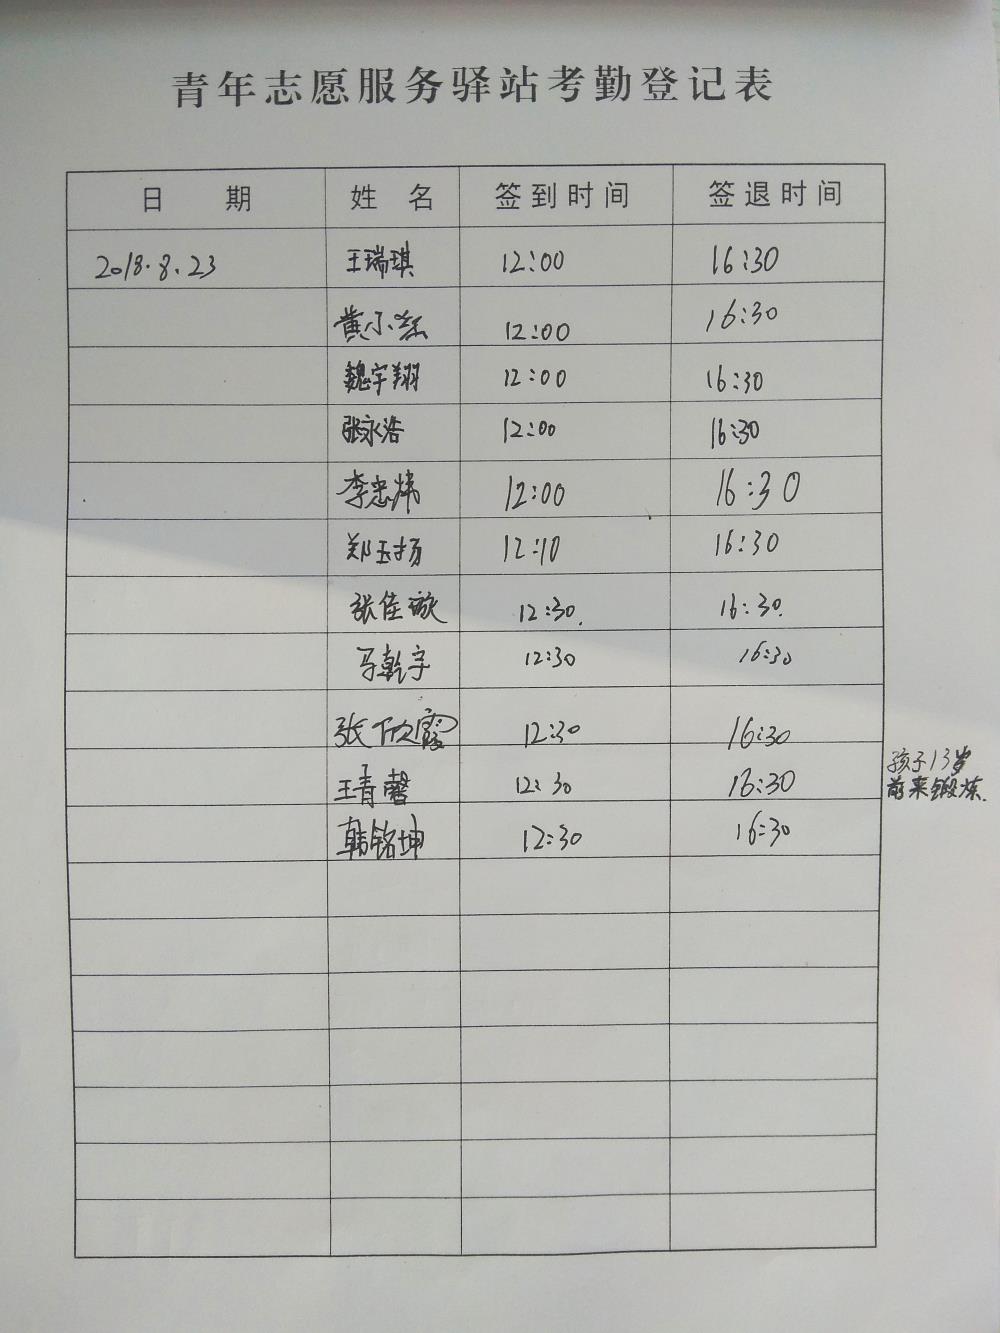 青年志愿服务驿站考勤登记表
日 期 姓 名 签到时间 签退时间
2018.8.23 王瑞琪 12:00 16:30
黄小红 12:00 16:30
魏宇翔 12:00 16:30
张永浩 12:00 16:30
李忠炜 12:00 16:30
郑玉扬 12:10 16:30
张佳璇 12:30. 16:30.
马乾宇 12:30 16:30
张欣霞 12:30 16:30
王青馨 12:30 16:30
孩子13岁
前来锻炼.
韩铭坤 12:30 16:30